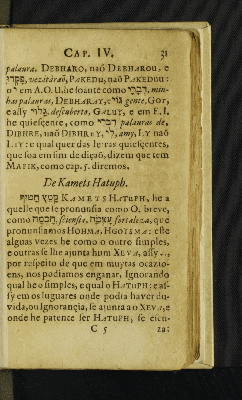 CAP. IV. 31
palaura. DEBHARO, naõ DEBHAROU. e פקדו,
vezitáraõ, PAKEDU, naõ PAKEDUU:
o י em A.O.U. he soante como דברי, min-
has palauras, DEBHARAY, e גוי gente, GOY,
e assy גלוי, descuberto, GALUY, e em E.I.
he quiescente, como דברי palauras de,
DIBHRE, naõ DIBHREY, לי, a my, LY naõ
LIY: e qual quer das letras quiescentes,
que soa em fim de diçaõ, dizem que tem
MAPIK, como cap. 5. diremos.
De Kamets Hatuph.
קמץ חטוף KAMETS HATUPH, he a
quelle que se pronunsia como O. breve,
como חכמה, sciensia. עצמה fortaleza, que
pronunsiamos HOHMA, HGOTSMA: este
algumas vezes he como o outre simples,
e outras se lhe ajunta hum XEVA, assy
por respeito de que em muytas ocazio-
ens, nos podiamos enganar, Ignorando
qual he o simples, e qual o HATUPH: e as-
sy em os luguares onde podia haver du-
vida, ou Ignorancia, se ajunta ao XEVA, e
onde he patence ser HATUPH, se escu-
C 5 za: